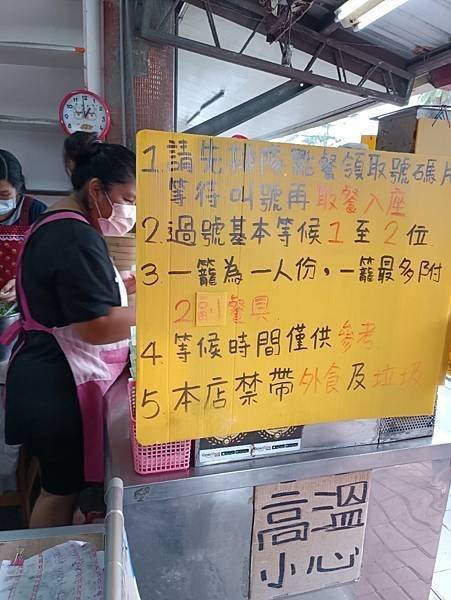 1.請先排隊點餐領取號碼片
等待叫號再取餐入座
2.過號基本等候1至2位
3.一籠為一人份,一籠最多附
2副餐具
4.等候時間僅供參考
5.本店禁帶外食及垃圾
高溫
小心